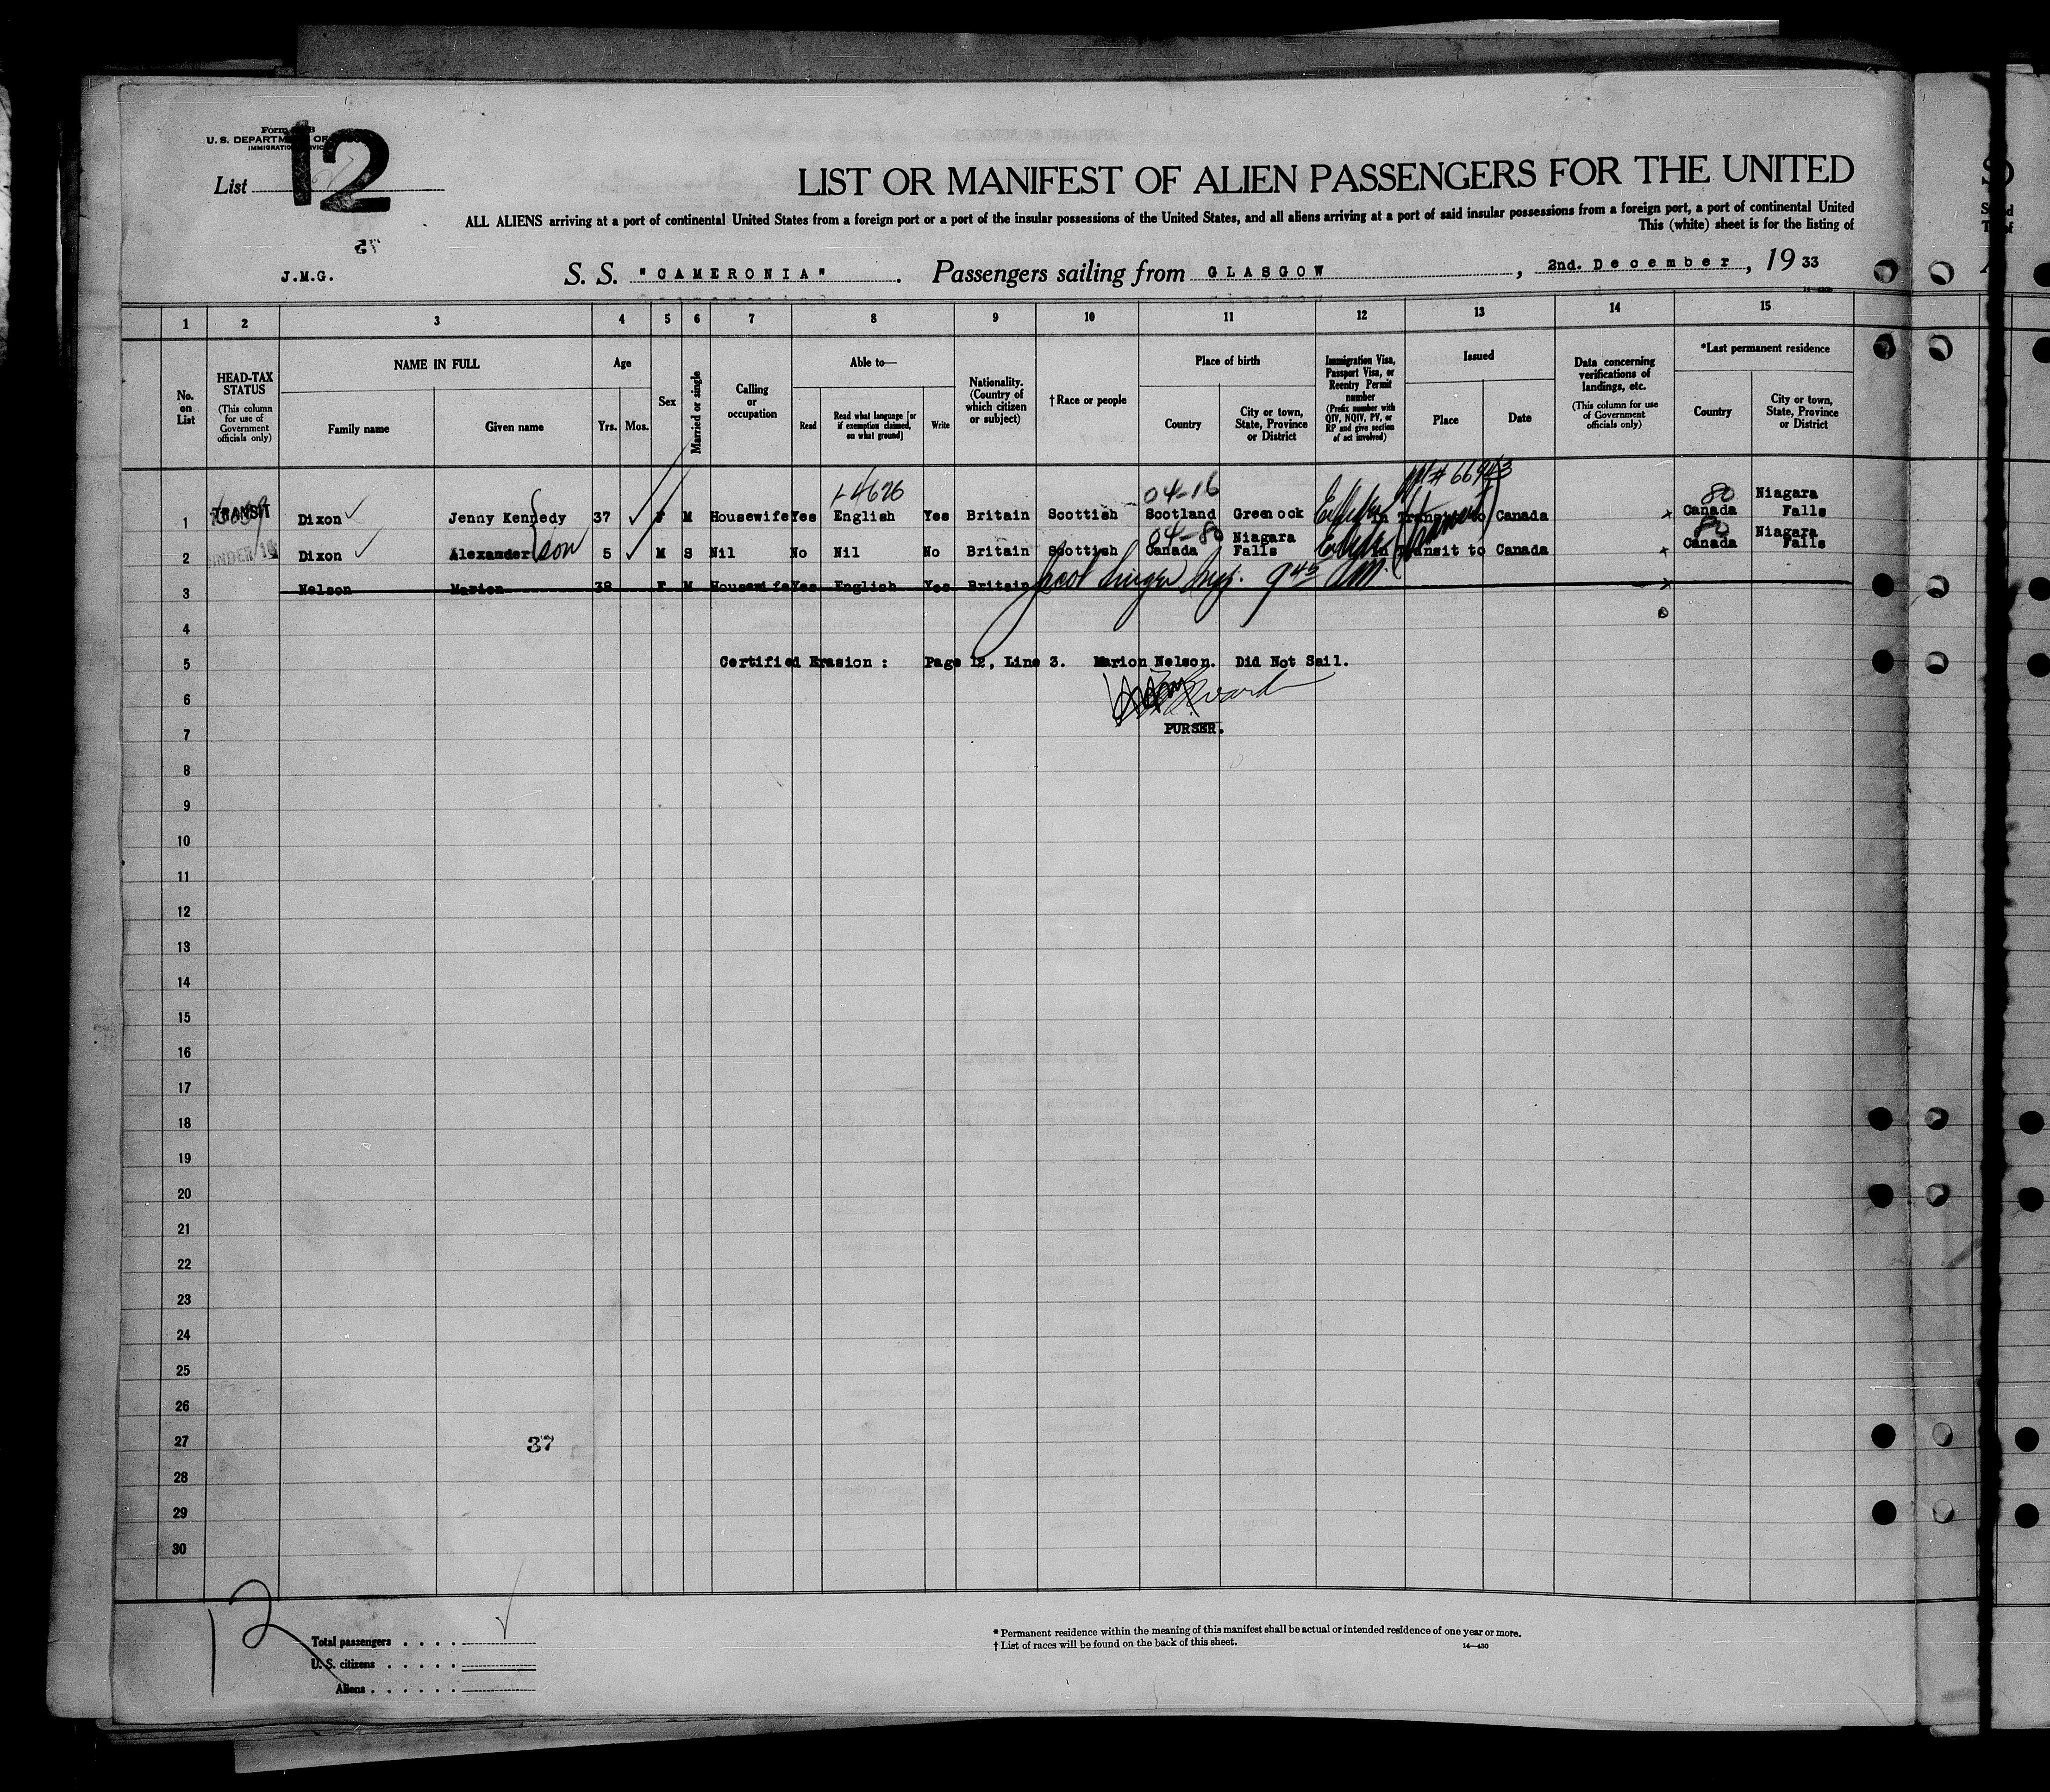 Form
U. S. DEPARTMENT OF
IMMIGRATION SERVICE
List 12
LIST OR MANIFEST OF ALIEN PASSENGERS FOR THE UNITED
ALL ALIENS arriving at a port of continental United States from a foreign port or a port of the insular possessions of the United States, and all aliens arriving at a port of said insular possessions from a foreign port, a port of continental United
This (white) sheet is for the listing of
J.M.G. S. S. "CAMERONIA". Passengers sailing from GLASGOW, 2nd. December, 19 33
1 2 3 4 5 6 7 8 9 10 11 12 13 14 15
No. on List
HEAD-TAX STATUS (This column for use of Government officials only)
NAME IN FULL
Family name Given name
Age
Yrs. Mos.
Sex
Married or single
Calling or occupation
Able to—
Read Read what language [or if exemption claimed, on what ground] Write
Nationality. (Country of which citizen or subject)
†Race or people
Place of birth
Country City or town, State, Province or District
Immigration Visa, Passport Visa, or Reentry Permit number (Prefix number with QIV, NQIV, PV, or RP and give section of act involved)
Issued
Place Date
Data concerning verifications of landings, etc. (This column for use of Government officials only)
*Last permanent residence
Country City or town, State, Province or District
1-4626 04-16 # 66943 80
1 TRANSIT Dixon Jenny Kennedy 37 F M Housewife Yes English Yes Britain Scottish Scotland Greenock In Transit to Canada x Canada Niagara Falls
04-80 80
2 UNDER 16 Dixon Alexander son 5 M S Nil No Nil No Britain Scottish Canada Niagara Falls In Transit to Canada x Canada Niagara Falls
3 Nelson Marion 38 F M Housewife Yes English Yes Britain Jacob Singer Insp. 9 45 AM. x
4
5 Certified Erasion : Page 12, Line 3. Marion Nelson. Did Not Sail.
6
7 PURSER.
8
9
10
11
12
13
14
15
16
17
18
19
20
21
22
23
24
25
26
27 37
28
29
30
12
Total passengers . . . .
U. S. citizens . . . . .
Aliens . . . . . .
* Permanent residence within the meaning of this manifest shall be actual or intended residence of one year or more.
† List of races will be found on the back of this sheet. 14—430